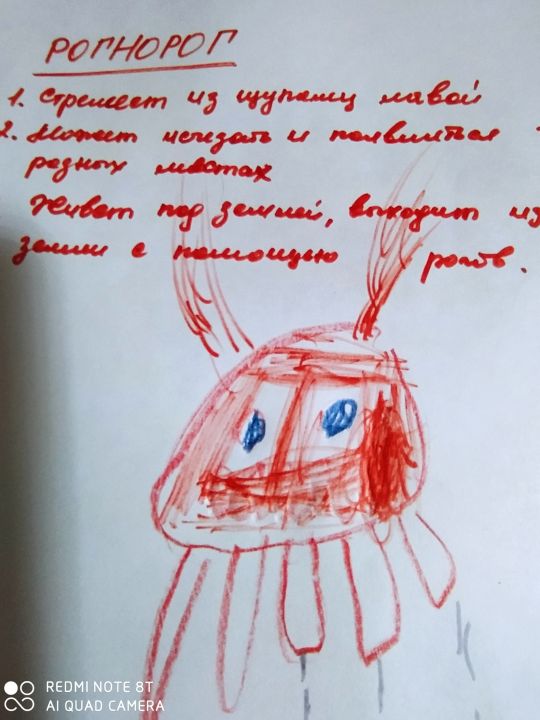 РОГНОРОГ
1. Стреляет из щупалец лавой
2. Может исчезать и появляться
разных местах
Живет под землей, выходит из
земли с помощью рогов.
REDMI NOTE 8T
AI QUAD CAMERA